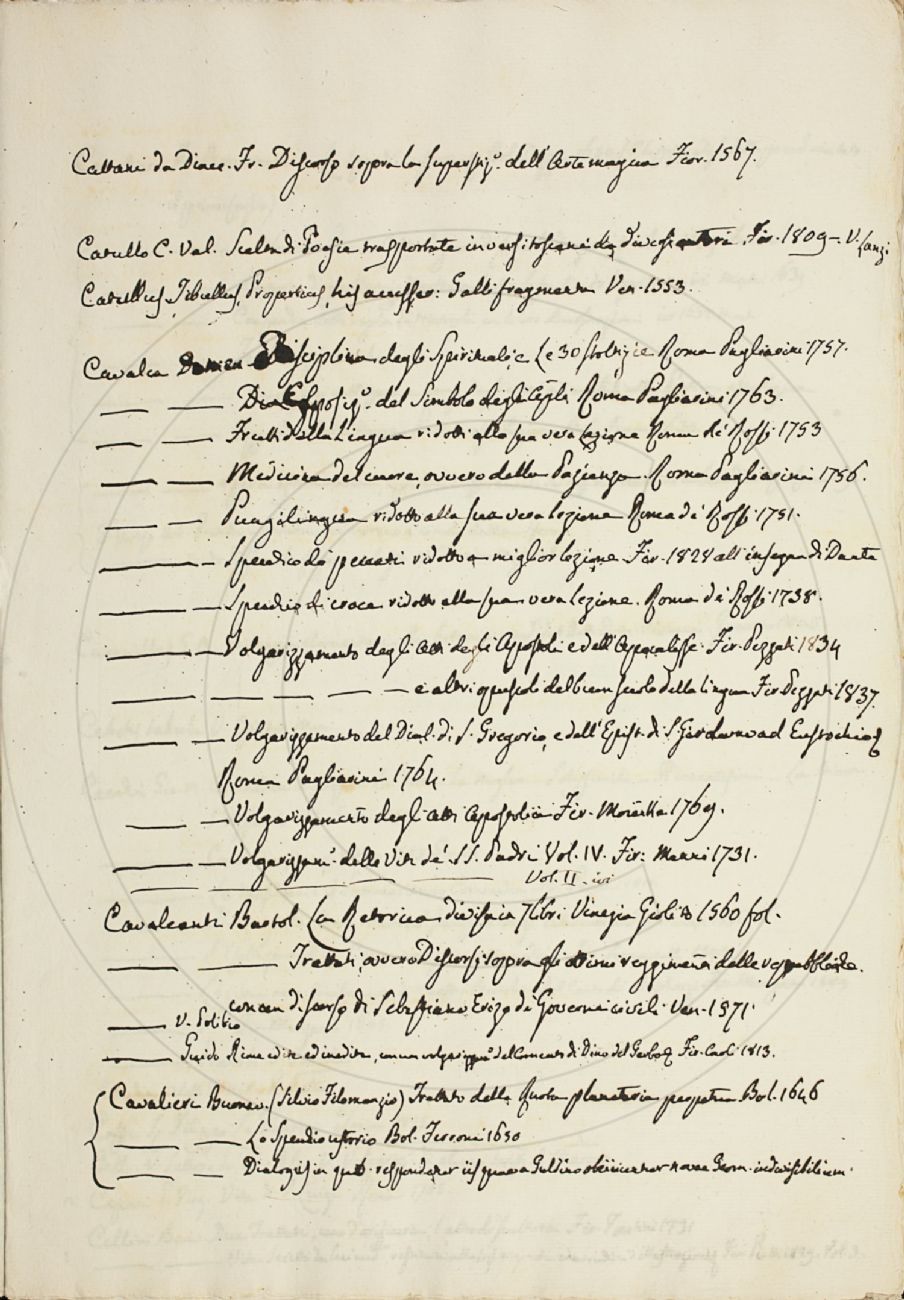 Cattani da Diacc. Fr. Discorso sopra la superstiz.e dell'Arte magica Fior. 1567.
Catullo C. Val. Scelta di Poesie trasportate in versi toscani da diversi autori Fir. 1809 - V. Sanzi.
Catullus, Tibullus, Propertius, his accesser: Galli fragmenta Ven. 1553.
Cavalca Disciplina degli Spirituali, e Le 30 Stoltizie Roma Pagliarini 1757.
— — Esposiz.e del Simbolo degli Apli Roma Pagliarini 1763.
— — Frutti della Lingua ridotti alla sua vera lezione Roma de' Rossi 1753
— — Medicina del cuore, ovvero della Pazienza. Roma Pagliarini 1756.
— — Pungilingua ridotto alla sua vera lezione Roma de' Rossi 1751.
— — Specchio de' peccati ridotto a miglior lezione Fir. 1828 all'insegna di Dante
— — Specchio di croce ridotto alla sua vera lezione. Roma de' Rossi 1738.
— — Volgarizzamento degli Atti degli Apostoli e dell'Apocalisse Fir. Pezzati 1834
— — — — — e altri opuscoli del buon secolo della lingua Fir Pezzati 1837.
— — Volgarizzamento del Dial. di S. Gregorio, e dell'Epist. di S. Girolamo ad Eustochio
Roma Pagliarini 1764.
— — Volgarizzamento degli Atti Apostolici Fir. 1769.
— — Volgarizzam.o delle Vite de' SS. Padri Vol. IV. Fir: Manni 1731.
— — — — Vol. II. ivi
Cavalcanti Bartol. La Retorica divisa in 7 libri Vinegia Giolito 1560 fol.
— — Trattati, ovvero Discorsi sopra gli ottimi reggimenti delle repubbliche.
con un discorso di Sebastiano Erizo de' Governi civili. Ven. 1571.
— V. Polibio
— Guido Rime edite ed inedite, con un volgarizz.o del Comento di Dino del Garbo Fir. Carli 1813.
Cavalieri Buonav. (Silvio Filomanzio) Trattato della Ruota planetaria perpetua Bol. 1646
— — Lo Specchio ustorio Bol. Ferroni 1650
— — in respondetur iis quae a Guldino obiiciuntur novae Geom. indivisibilium.